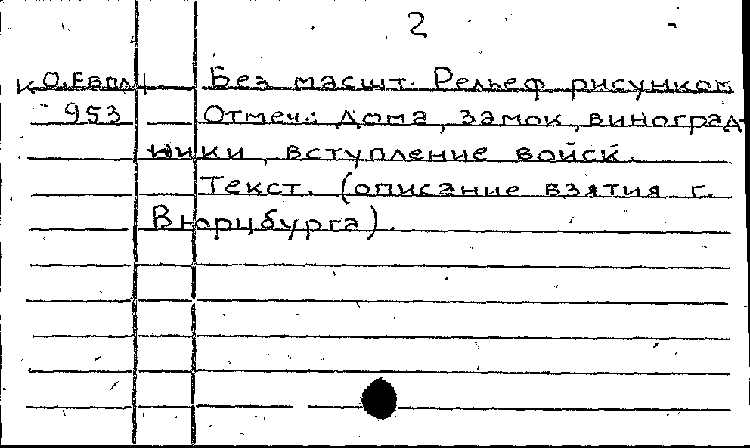 2
К О.Евпл Без масшт. Рельеф рисунком
953 Отмеч.: дома, замок, виноград-
ники, вступление войск.
Текст. (описание взятия г.
Вюрцбурга).